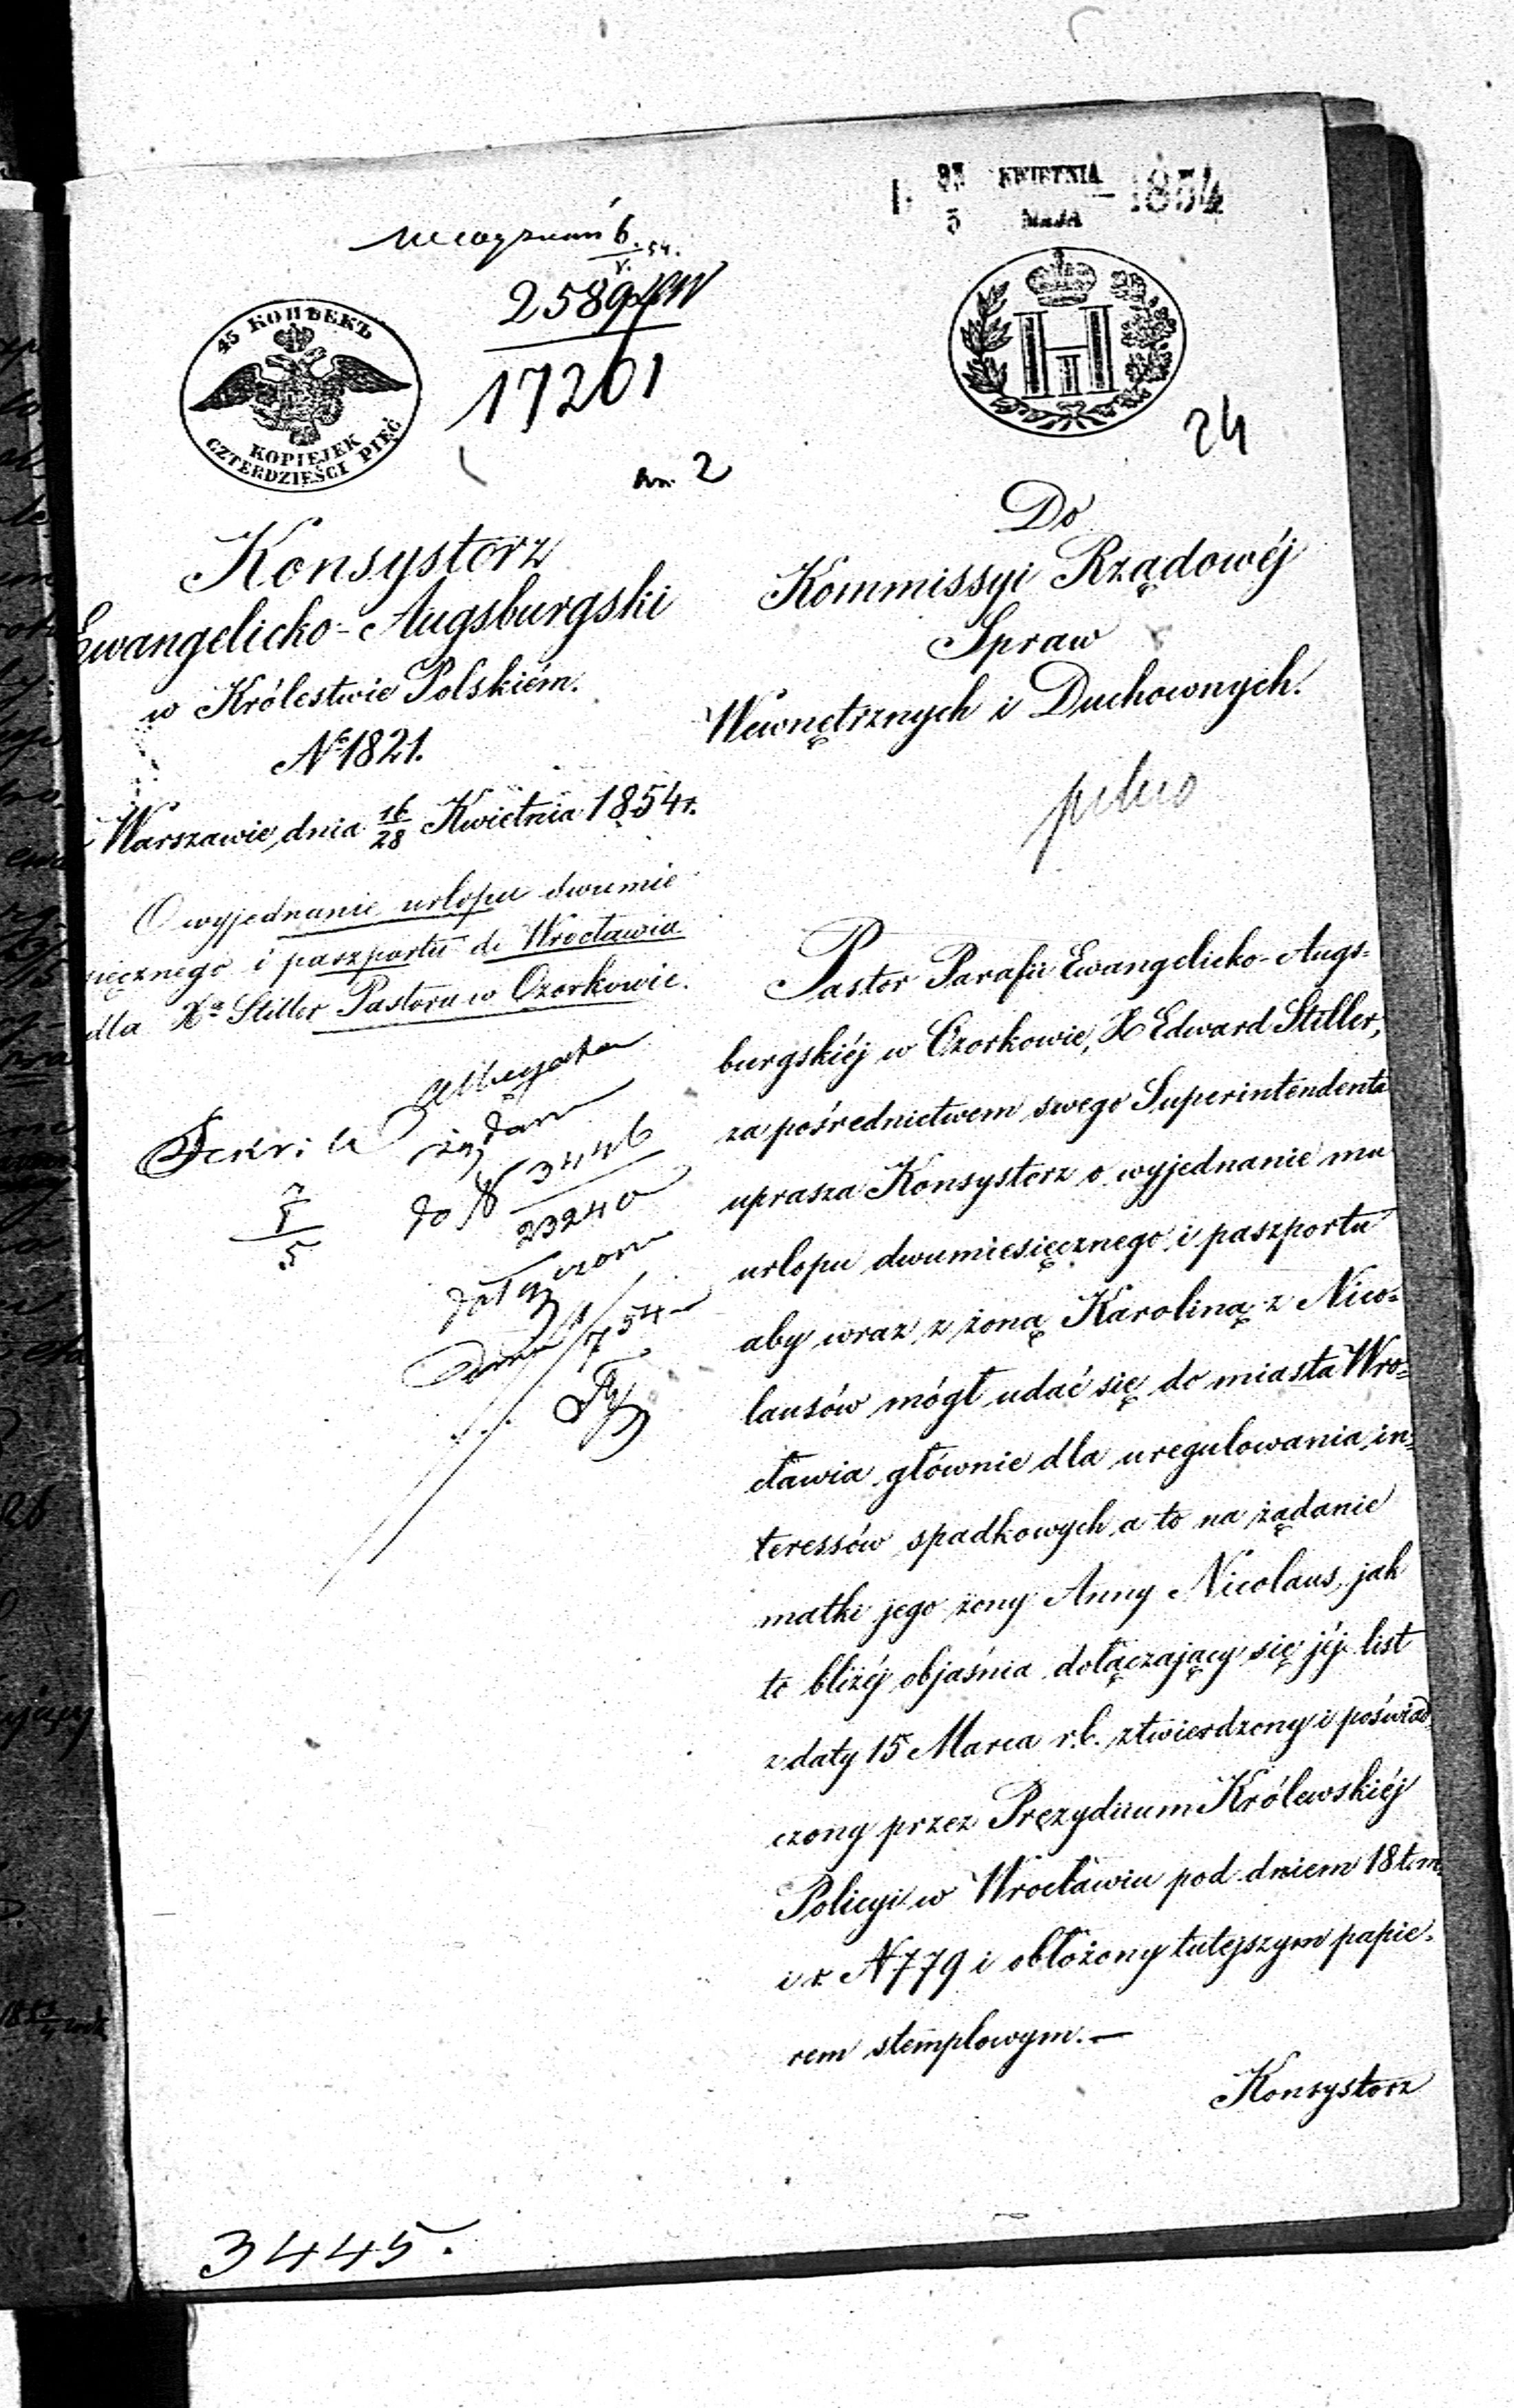 KWIETNIA
MAJA
1854
6
V. 54.
2589
17201
45 КОПѢЕКЪ
KOPIEJEK
CZTERDZIEŚCI PIĘĆ
24
2
Konsystorz
Ewangelicko-Augsburgski
w Królestwie Polskiém.
№ 1821.
Warszawie, dnia 16/28 Kwietnia 1854 r.
O wyjednanie urlopu dwumie
sięcznego i paszportu do Wrocławia
dla Xa Stiller Pastora w Ozorkowie.
Do
Kommissyi Rządowéj
Spraw
Wewnętrznych i Duchownych.
pilno
żądam
do N 3446
23240
dołączone
7
5
Pastor Parafii Ewangelicko-Augs=
burgskiéj w Ozorkowie, X Edward Stiller,
za pośrednictwem swego Superintendenta
uprasza Konsystorz o wyjednanie mu
urlopu dwumiesięcznego i paszportu
aby wraz z żoną Karoliną z Nico=
lausów mógł udać się do miasta Wro=
cławia głównie dla uregulowania in=
teressów spadkowych a to na żądanie
matki jego żony Anny Nicolaus, jak
to bliżéj objaśnia dołączający się jéj list
z daty 15 Marca r.b. ztwierdzony i poświad
czony przez Prezydium Królewskiéj
Policyi w Wrocławiu pod dniem 18 t.m.
i r. N 779 i obłożony tutejszym papie=
rem stemplowym. —
Konsystorz
3445.